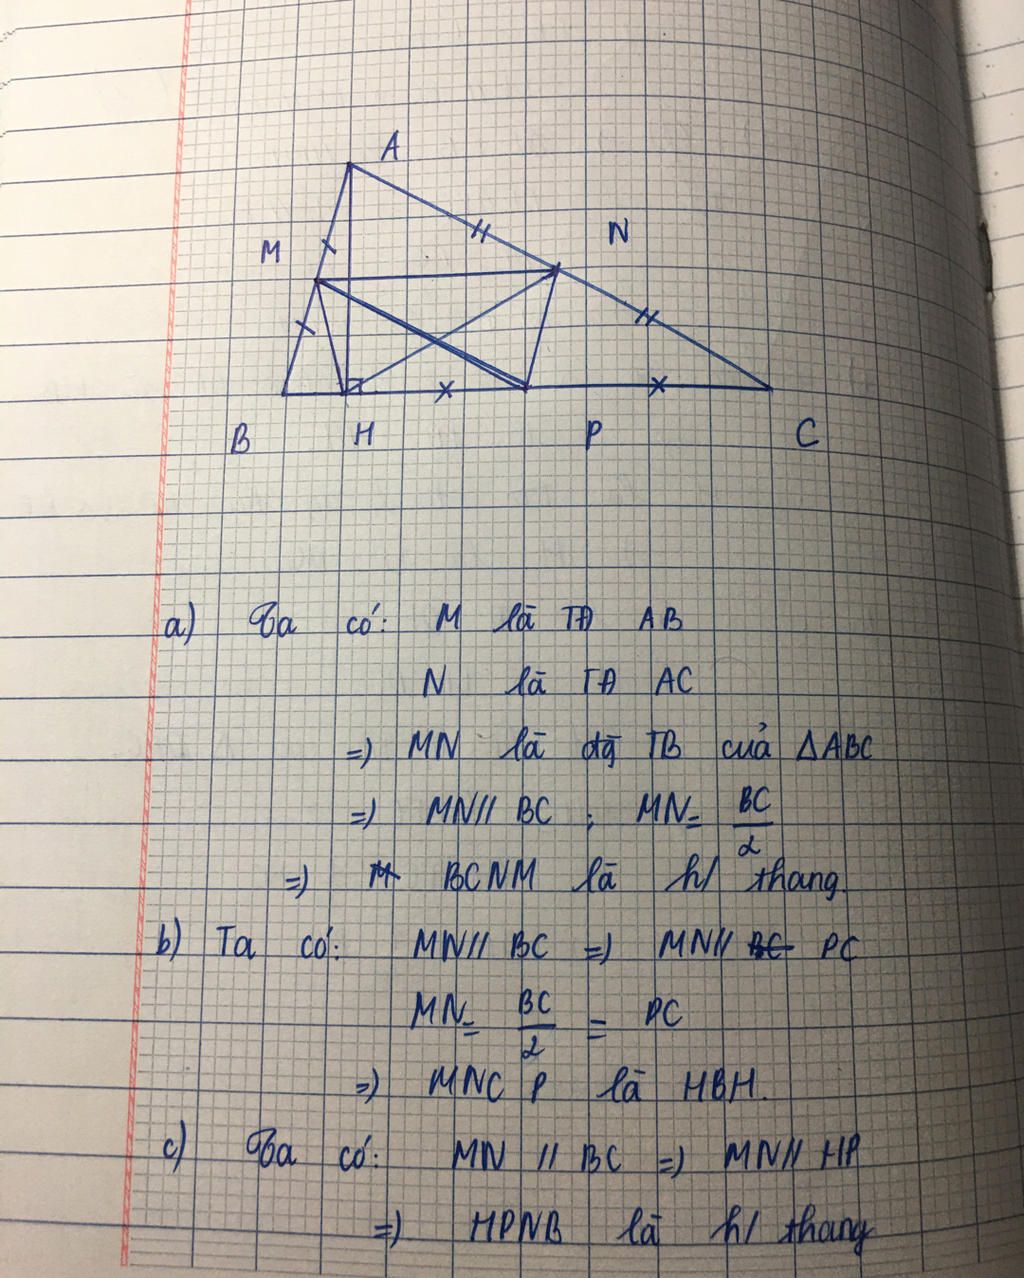 A
M
N
B H P C
a) Ta có: M là TĐ AB
N là TĐ AC
=) MN là đg TB của ΔABC
=) MN// BC ; MN= BC/2
=) BCNM là h/ thang.
b) Ta có: MN// BC =) MN// BC PC
MN= BC/2 = PC
=) MNCP là HBH.
c) Ta có: MN // BC =) MN// HP
=) HPNB là h/ thang